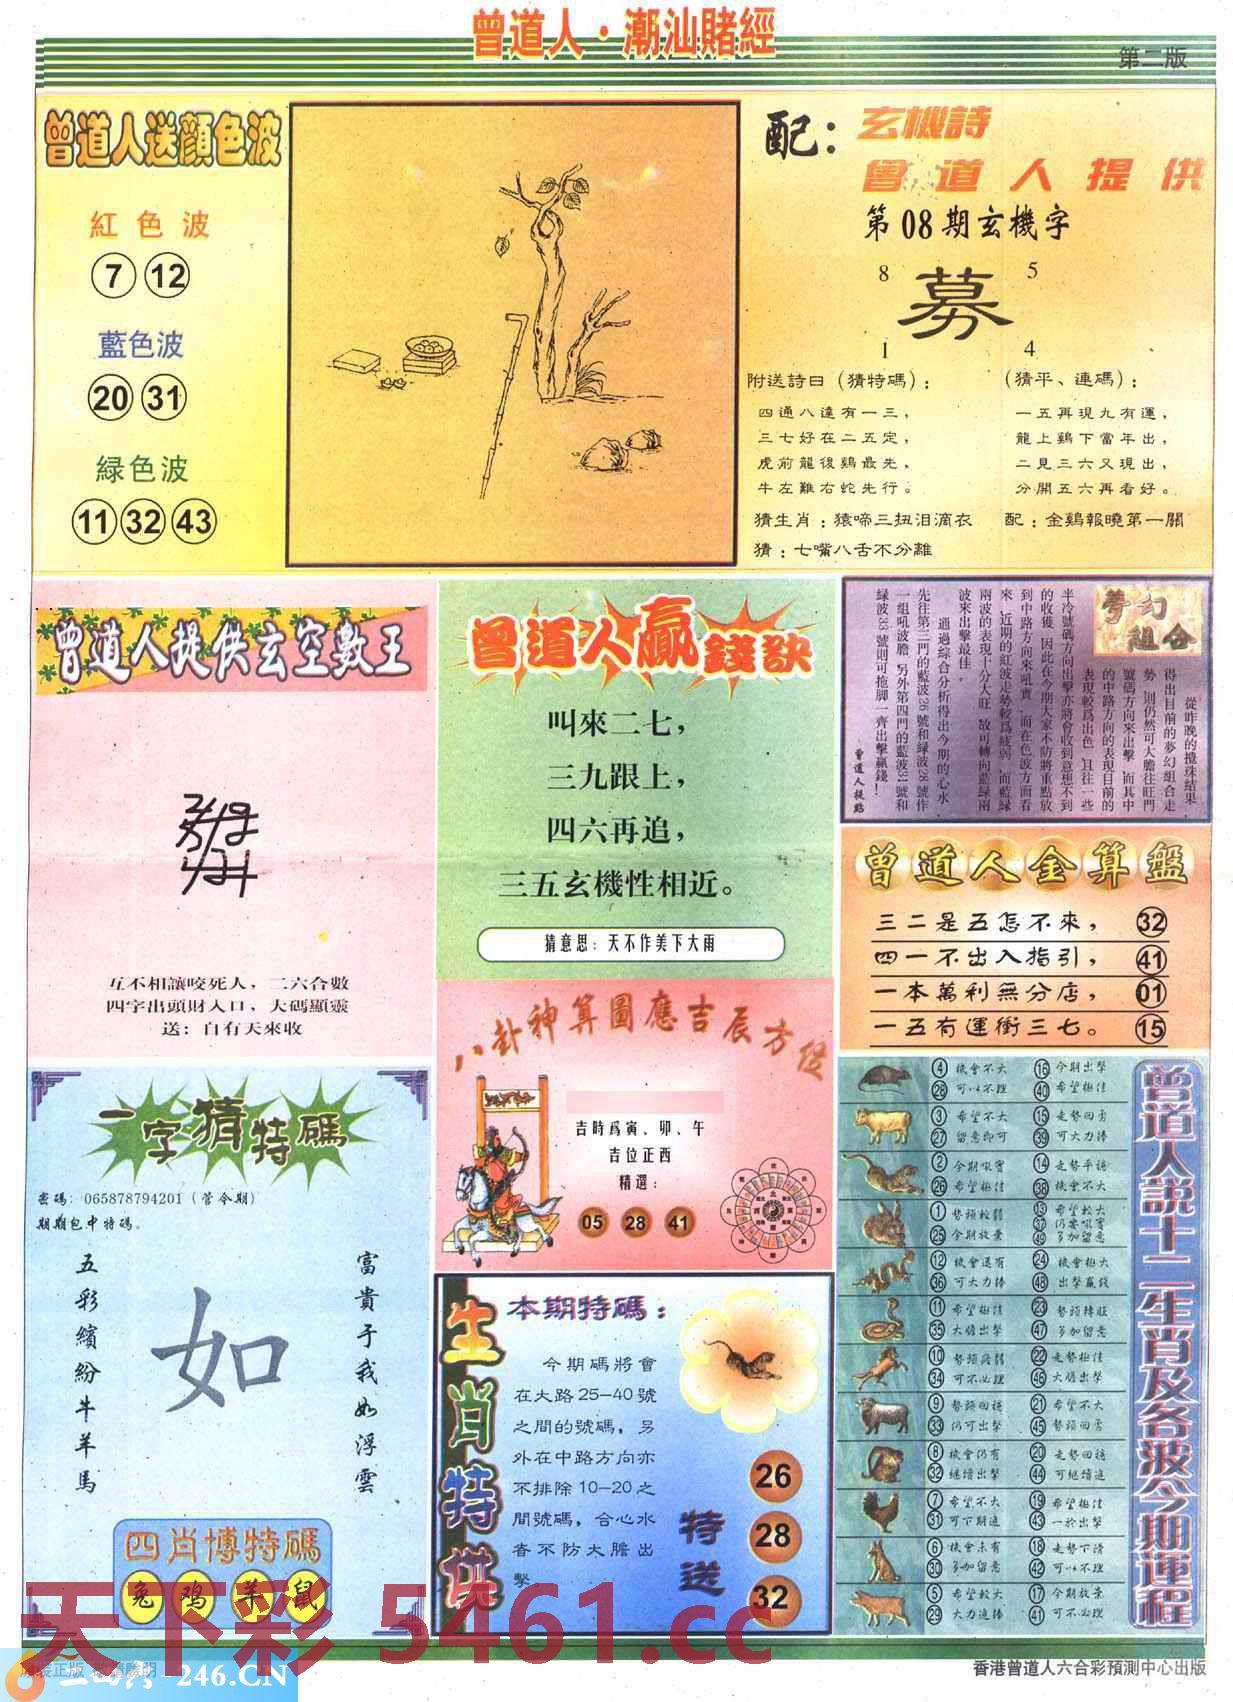 曾道人·潮汕賭經
第二版
曾道人送顔色波
紅色波
7 12
藍色波
20 31
緑色波
11 32 43
配：玄機詩
曾道人提供
第08期玄機字
8 5
募
1 4
附送詩曰（猜特碼）：
四通八達有一三，
三七好在二五定，
虎前龍後鷄最先，
牛左難右蛇先行。
（猜平、連碼）：
一五再現九有運，
龍上鷄下當年出，
二見三六又現出，
分開五六再看好。
猜生肖：猿啼三扭泪滴衣
配：金鷄報曉第一關
猜：七嘴八舌不分離
曾道人提供玄空數王
互不相讓咬死人，二六合數
四字出頭財入口，大碼顯靈
送：自有天來收
曾道人贏錢訣
叫來二七，
三九跟上，
四六再追，
三五玄機性相近。
猜意思：天不作美下大雨
夢幻組合
從昨晚的攪珠結果
得出目前的夢幻組合走
勢 則仍然可大膽往旺門
號碼方向來出擊 而其中
的中路方向的表現目前的
表現較爲出色 且往一些
半冷號碼方向出擊亦將會收到意想不到
的收獲 因此在今期大家不防將重點放
到中路方向來吼實 而在色波方面看
來 近期的紅波走勢較爲綾弱 而藍緑
兩波的表現十分大旺 故可轉向藍緑兩
波來出擊最佳。
通過綜合分析得出今期的心水
先往第三門的藍波26號和緑波28號作
一組吼波膽 另外第四門的藍波31號和
緑波33號則可拖脚一齊出擊贏錢！
曾道人提點
曾道人金算盤
三二是五怎不來， 32
四一不出入指引， 41
一本萬利無分店， 01
一五有運衝三七。 15
八卦神算圖應吉辰方位
吉時爲寅、卯、午
吉位正西
精選：
05 28 41
一字猜特碼
密碼：065878794201（管令期）
期期包中特碼。
五彩繽紛牛羊馬
如
富貴于我如浮雲
四肖博特碼
兔 鸡 羊 鼠
生肖特供
本期特碼：
今期碼將會
在大路25—40號
之間的號碼，另
外在中路方向亦
不排除10—20之
間號碼，合心水
者不防大膽出
擊
特送
26
28
32
曾道人説十二生肖及各波今期運程
4 機會不大 16 今期出擊
28 可以不理 40 希望極佳
3 希望不大 15 走勢回勇
27 留意即可 39 可大力捧
2 今期吼實 14 走勢平穩
26 希望極佳 38 機會不大
1 勢頭較弱 13 希望較大
37 仍要吼實
25 今期放棄 49 多加留意
12 機會還有 24 機會極大
36 可大力捧 48 出擊贏錢
11 希望極佳 23 勢頭轉旺
35 大膽出擊 47 多加留意
10 勢頭 22 走勢極佳
34 可不必理 46 大膽出擊
9 勢頭回穩 21 希望不大
33 仍可出擊 45 勢頭回勇
8 機會仍有 20 走勢回穩
32 繼續出擊 44 可繼續追
7 希望不大 19 希望極佳
31 可下期追 43 一於出擊
6 機會未有 18 走勢下滑
30 多加留意 42 可以不理
5 希望較大 17 今期放棄
29 大力追捧 41 可不必理
天下彩 5461.cc
246.CN
香港曾道人六合彩預測中心出版